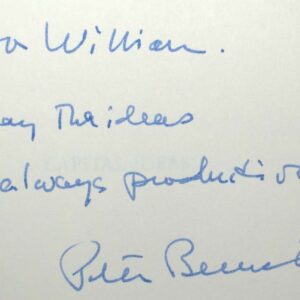 William.
ay The ideas
always productiv
Peter Bernst